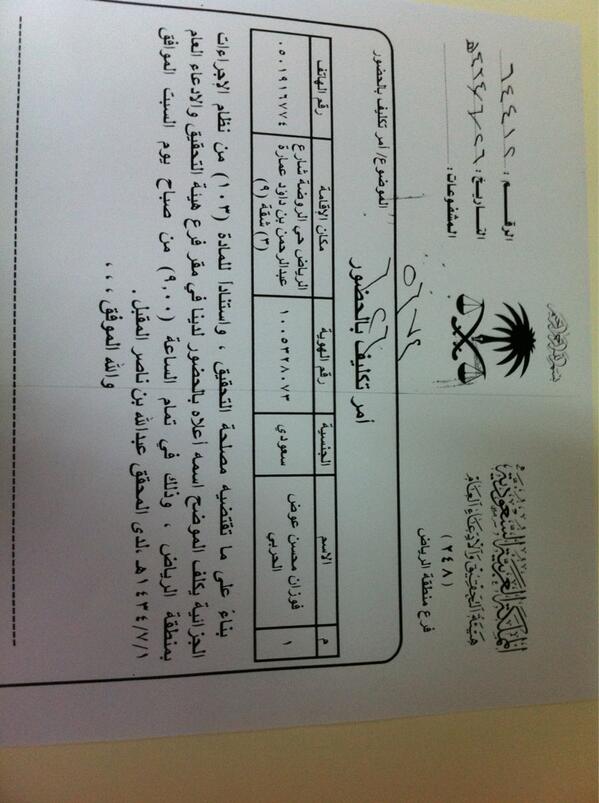 بسم الله الرحمن الرحيم
المملكة العربية السعودية
هيئة التحقيق والادعاء العام
(٢٤٨)
فرع منطقة الرياض
الرقم :
التاريخ :
المشفوعات :
الموضوع/ أمر تكليف بالحضور
أمر تكليف بالحضور
م الاسم الجنسية رقم الهوية مكان الإقامة رقم الهاتف
١ فوزان محسن عوض الحربي سعودي ١٠٠٥٣٢٨٠٧٣ الرياض حي الروضة شارع عبدالرحمن بن داود عمارة (٣) شقة (٩) ٠٥٠١٩١٦٧٧٤
بناءً على ما تقتضيه مصلحة التحقيق ، واستناداً للمادة (١٠٣) من نظام الإجراءات
الجزائية يكلف الموضح اسمه أعلاه بالحضور لدينا في مقر فرع هيئة التحقيق والادعاء العام
بمنطقة الرياض ، وذلك في تمام الساعة (٩,٠٠) من صباح يوم السبت الموافق
١٤٣٤/٧/١هـ ،لدى المحقق عبدالله بن ناصر المقبل .
والله الموفق ، ، ،